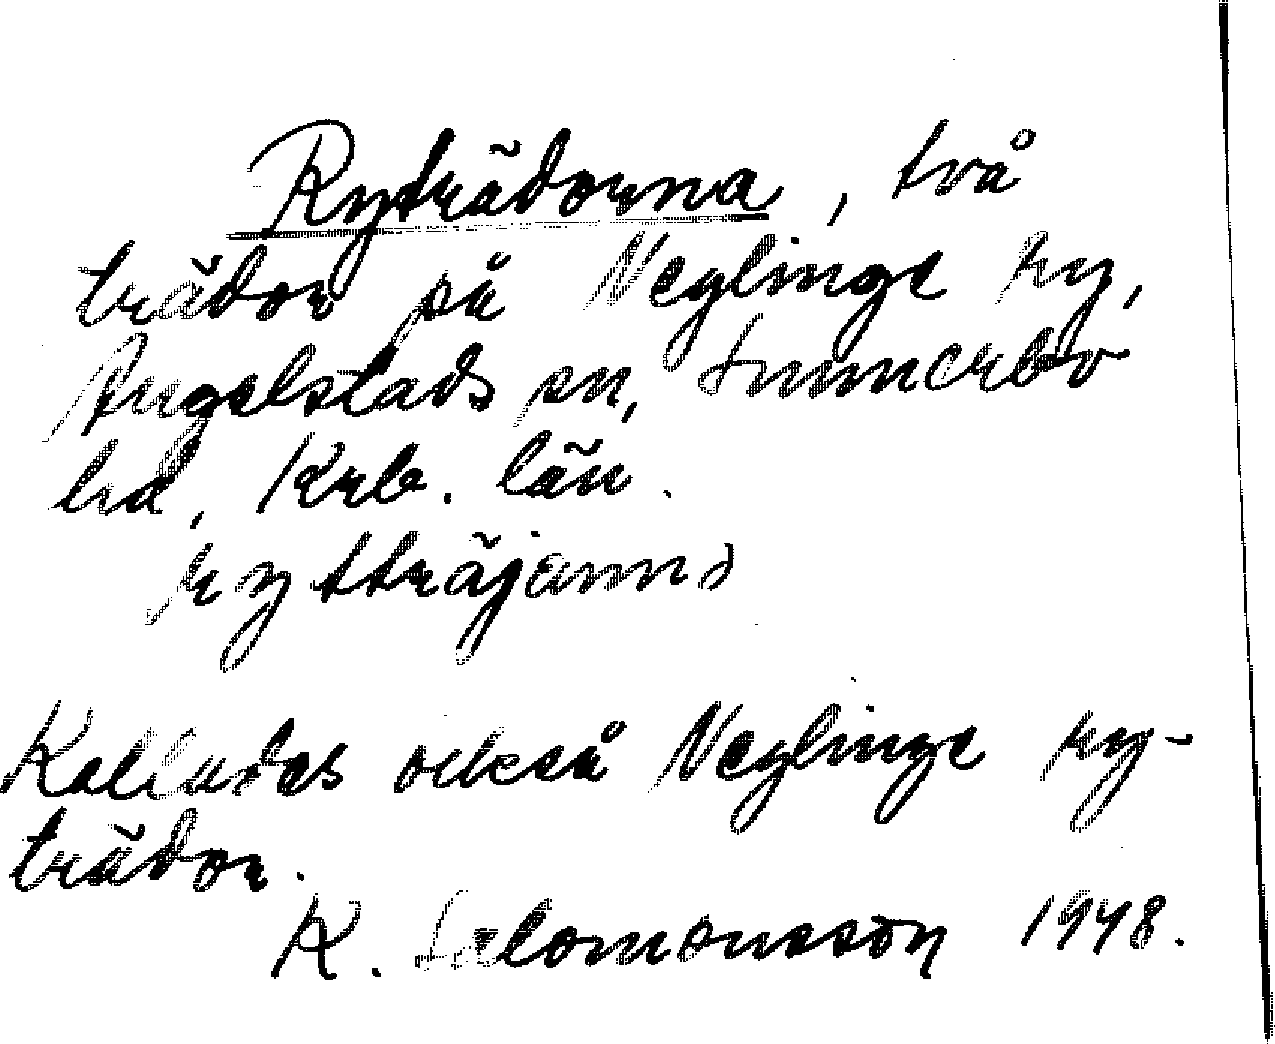 Ryträdorna, två
trädor på Neglinge ry,
Angelstads sn, Sunnerbo
hd, Krb. län.
rytträjanna
Kallades också Neglinge ry-
trädor.
K. Salomonsson 1948.